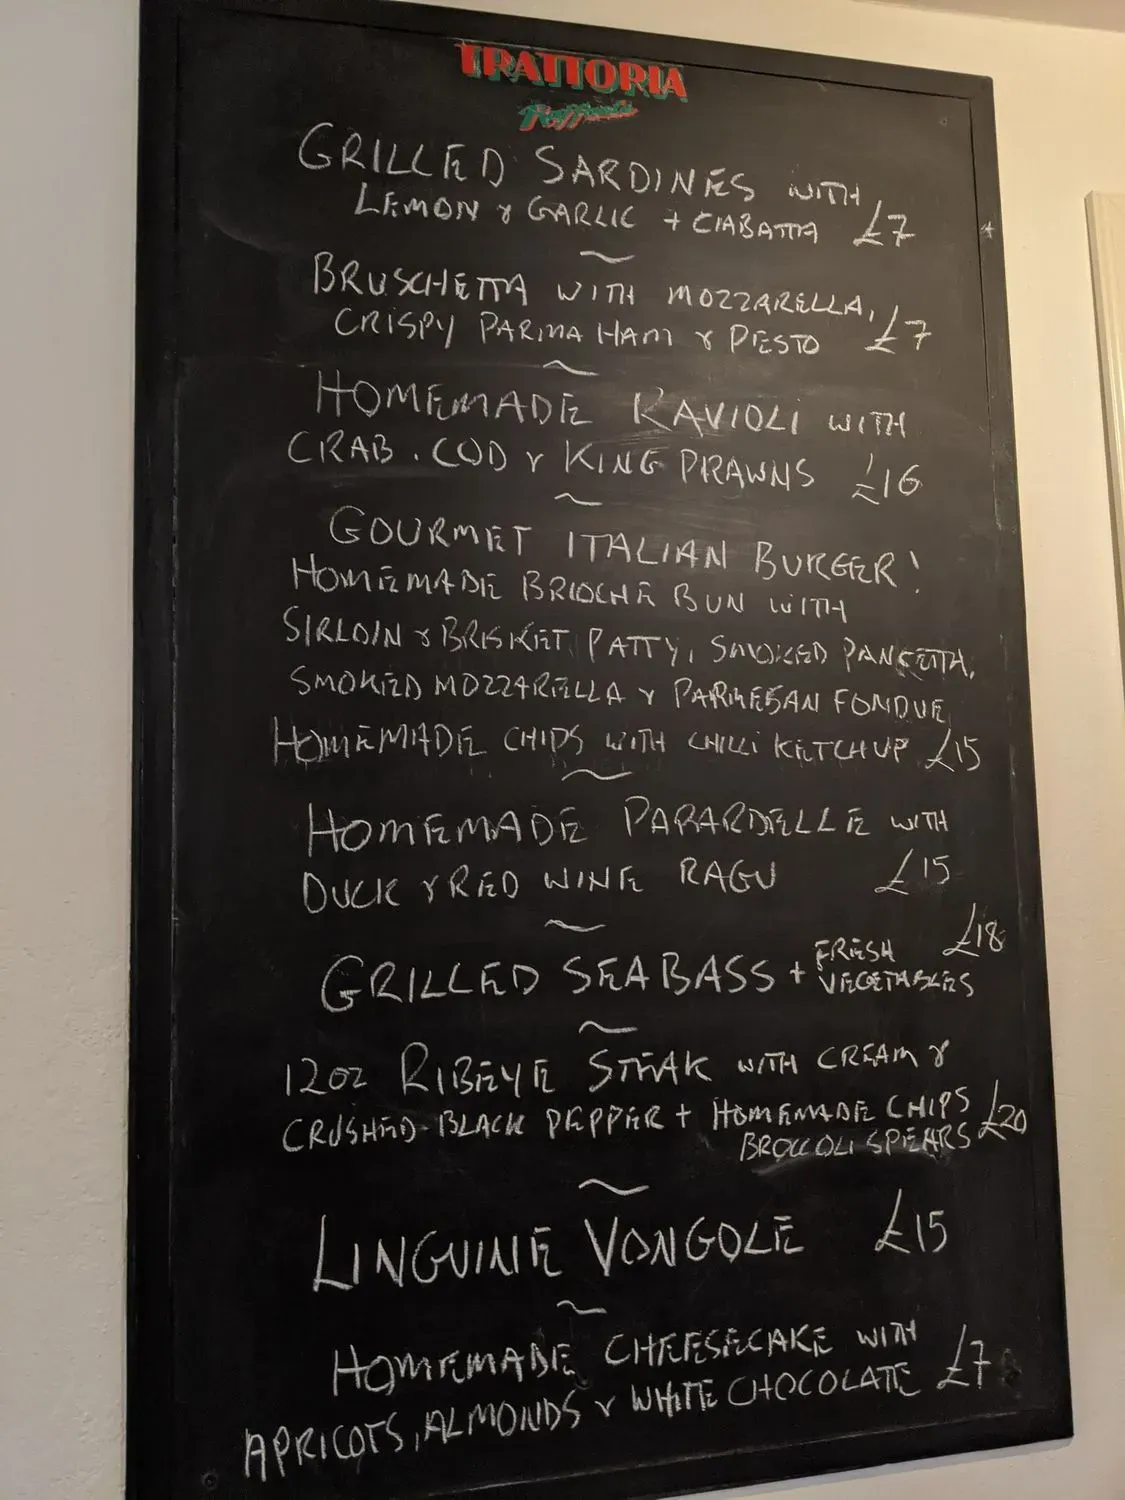 TRATTORIA
Raffaele
GRILLED SARDINES WITH
LEMON & GARLIC + CIABATTA £7
~
BRUSCHETTA WITH MOZZARELLA,
CRISPY PARMA HAM & PESTO £7
~
HOMEMADE RAVIOLI WITH
CRAB, COD & KING PRAWNS £16
~
GOURMET ITALIAN BURGER!
HOMEMADE BRIOCHE BUN WITH
SIRLOIN & BRISKET PATTY, SMOKED PANCETTA,
SMOKED MOZZARELLA & PARMESAN FONDUE
HOMEMADE CHIPS WITH CHILLI KETCHUP £15
~
HOMEMADE PAPARDELLE WITH
DUCK & RED WINE RAGU £15
~
GRILLED SEABASS + FRESH VEGETABLES £18
~
12OZ RIBEYE STEAK WITH CREAM &
CRUSHED BLACK PEPPER + HOMEMADE CHIPS £20
BROCCOLI SPEARS
~
LINGUINE VONGOLE £15
~
HOMEMADE CHEESECAKE WITH
APRICOTS, ALMONDS & WHITE CHOCOLATE £7